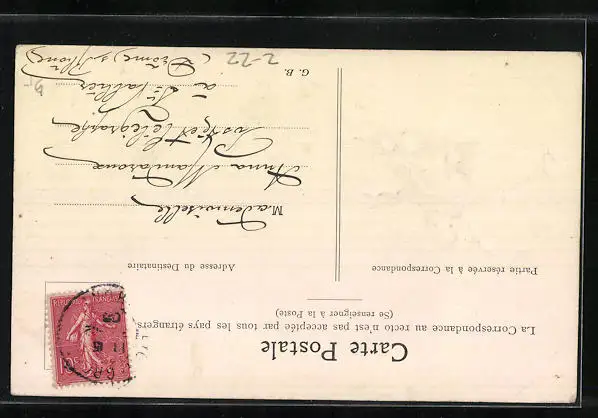 Carte Postale
La Correspondance au recto n'est pas acceptée par tous les pays étrangers.
(Se renseigner à la Poste)
Partie réservée à la Correspondance
Adresse du Destinataire
Mademoiselle
Anna
Poste et Télégraphe
à St Vallier
(Drôme) s/ Rhône
G. B.
2-22
REPUBLIQUE FRANÇAISE